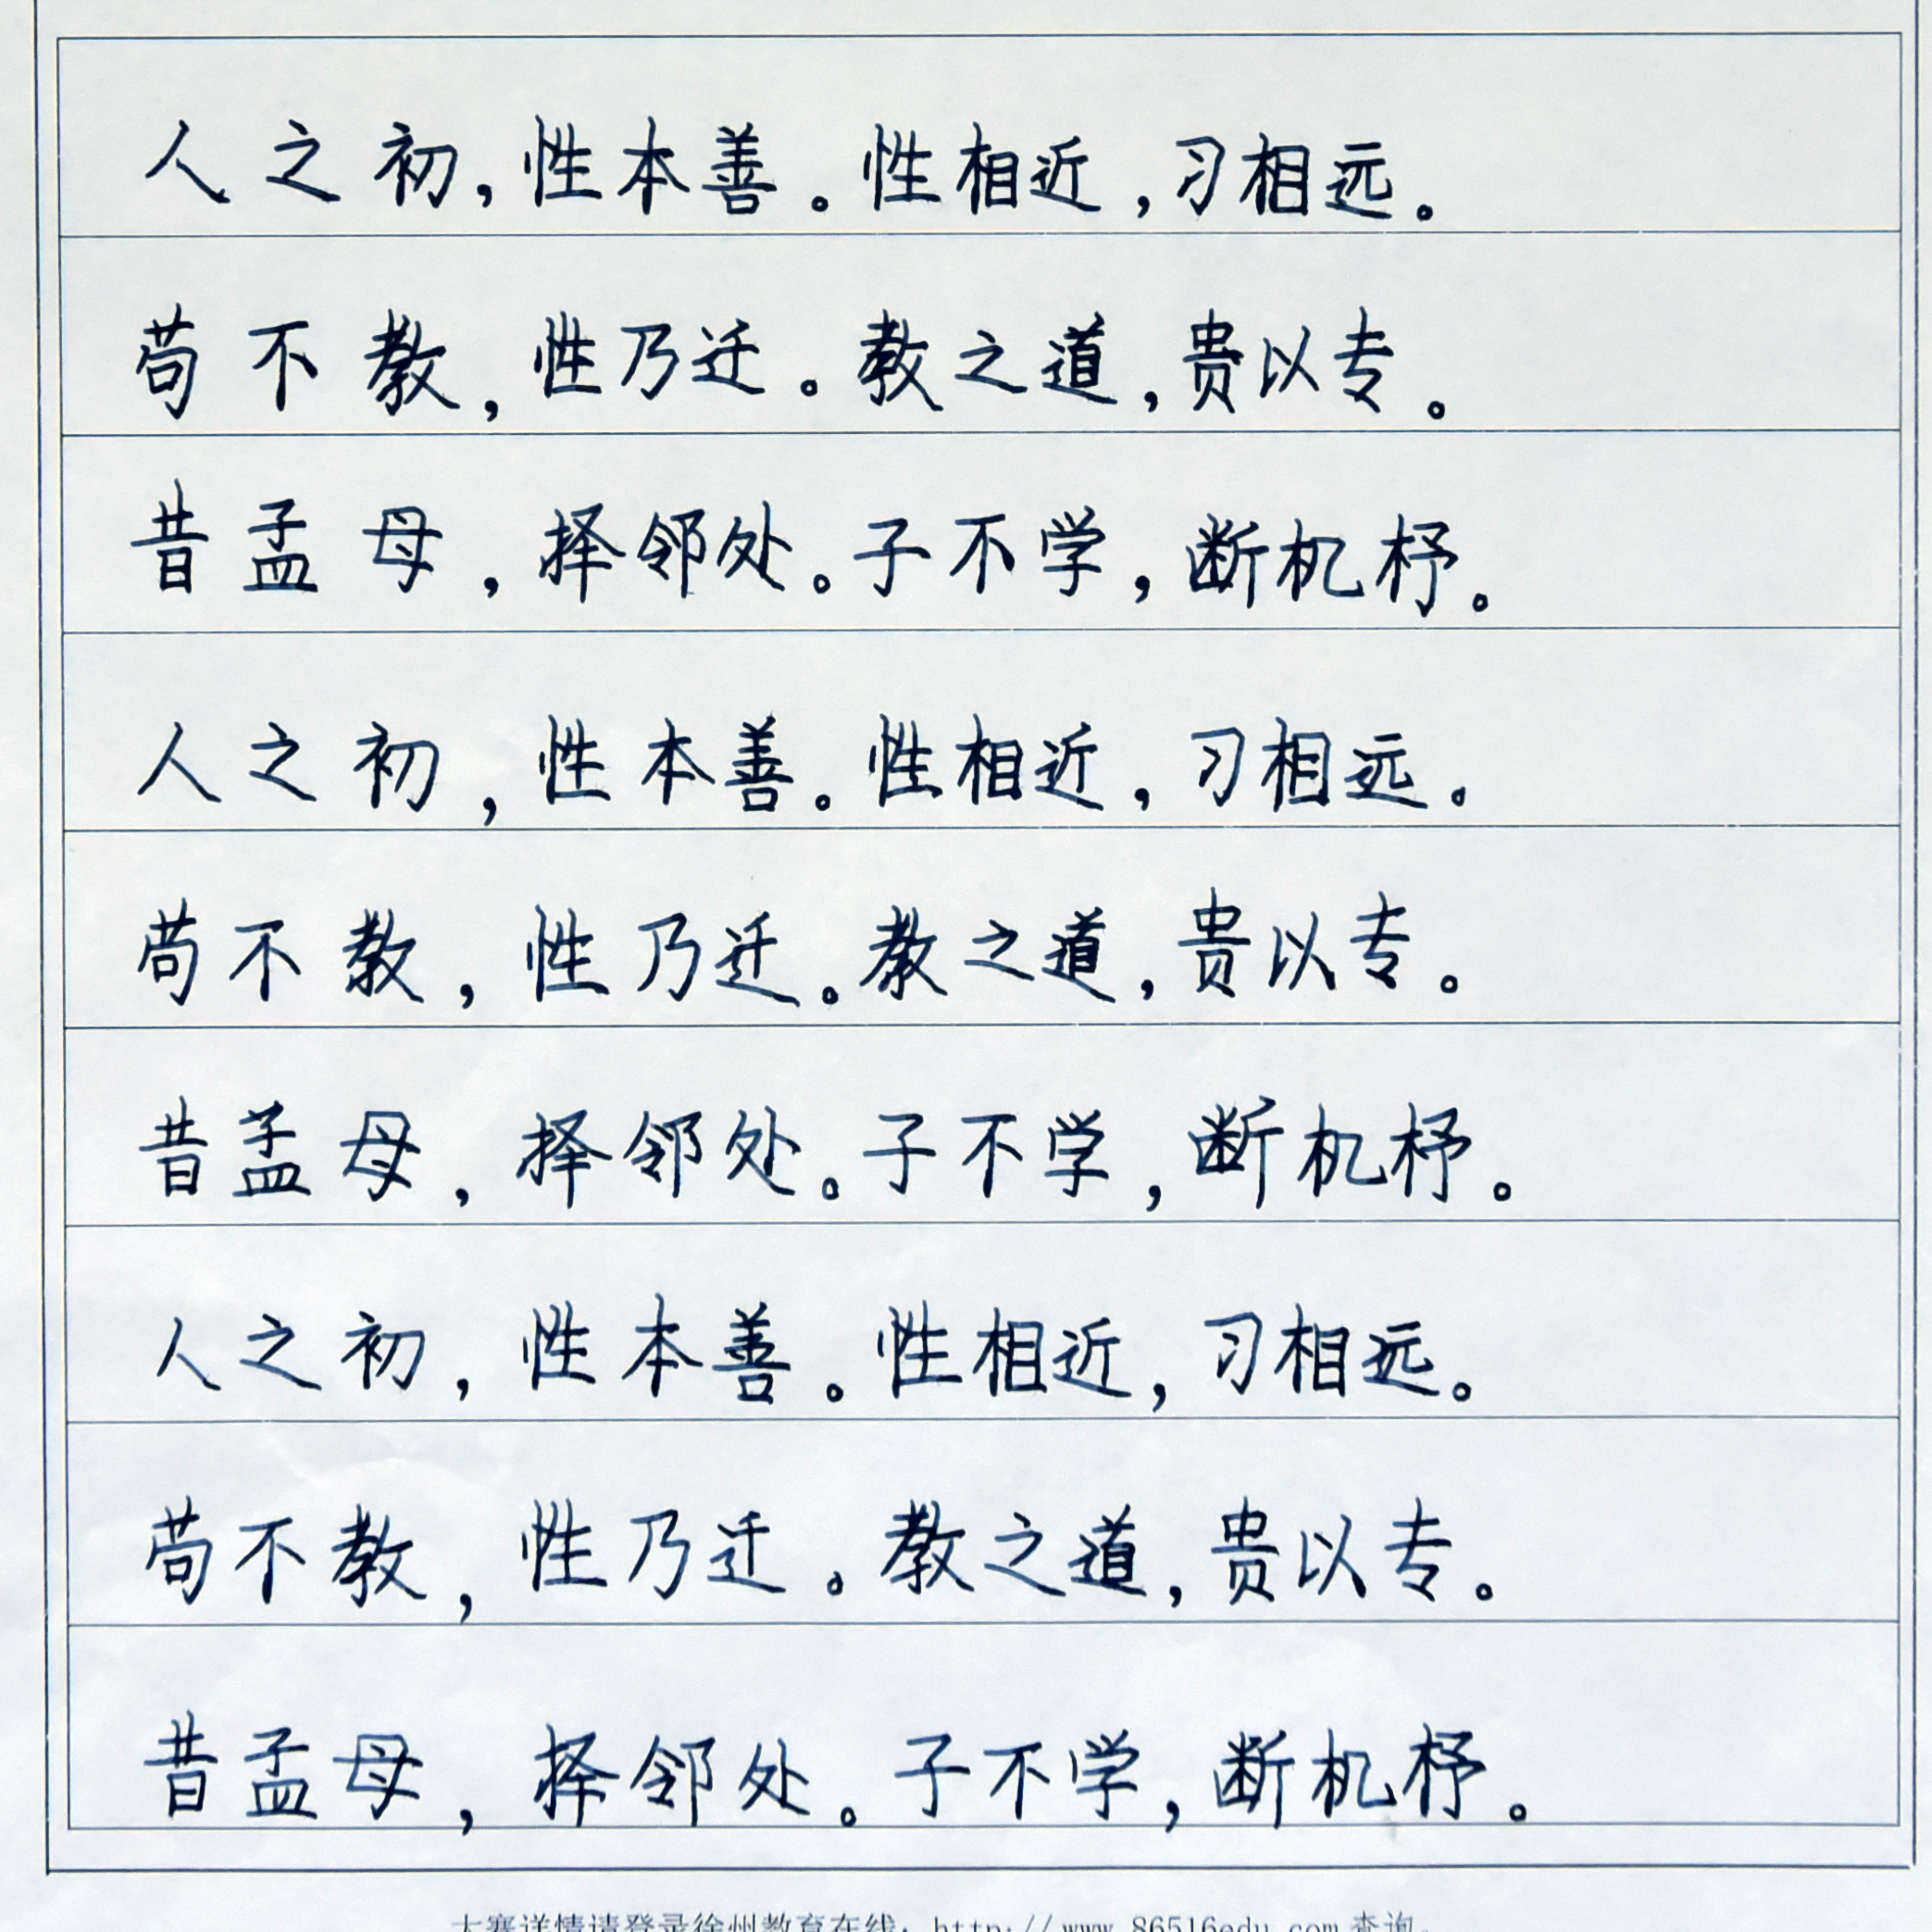 人之初，性本善。性相近，习相远。
苟不教，性乃迁。教之道，贵以专。
昔孟母，择邻处。子不学，断机杼。
人之初，性本善。性相近，习相远。
苟不教，性乃迁。教之道，贵以专。
昔孟母，择邻处。子不学，断机杼。
人之初，性本善。性相近，习相远。
苟不教，性乃迁。教之道，贵以专。
昔孟母，择邻处。子不学，断机杼。
大赛详情请登录徐州教育在线：http://www.86516edu.com 查询。